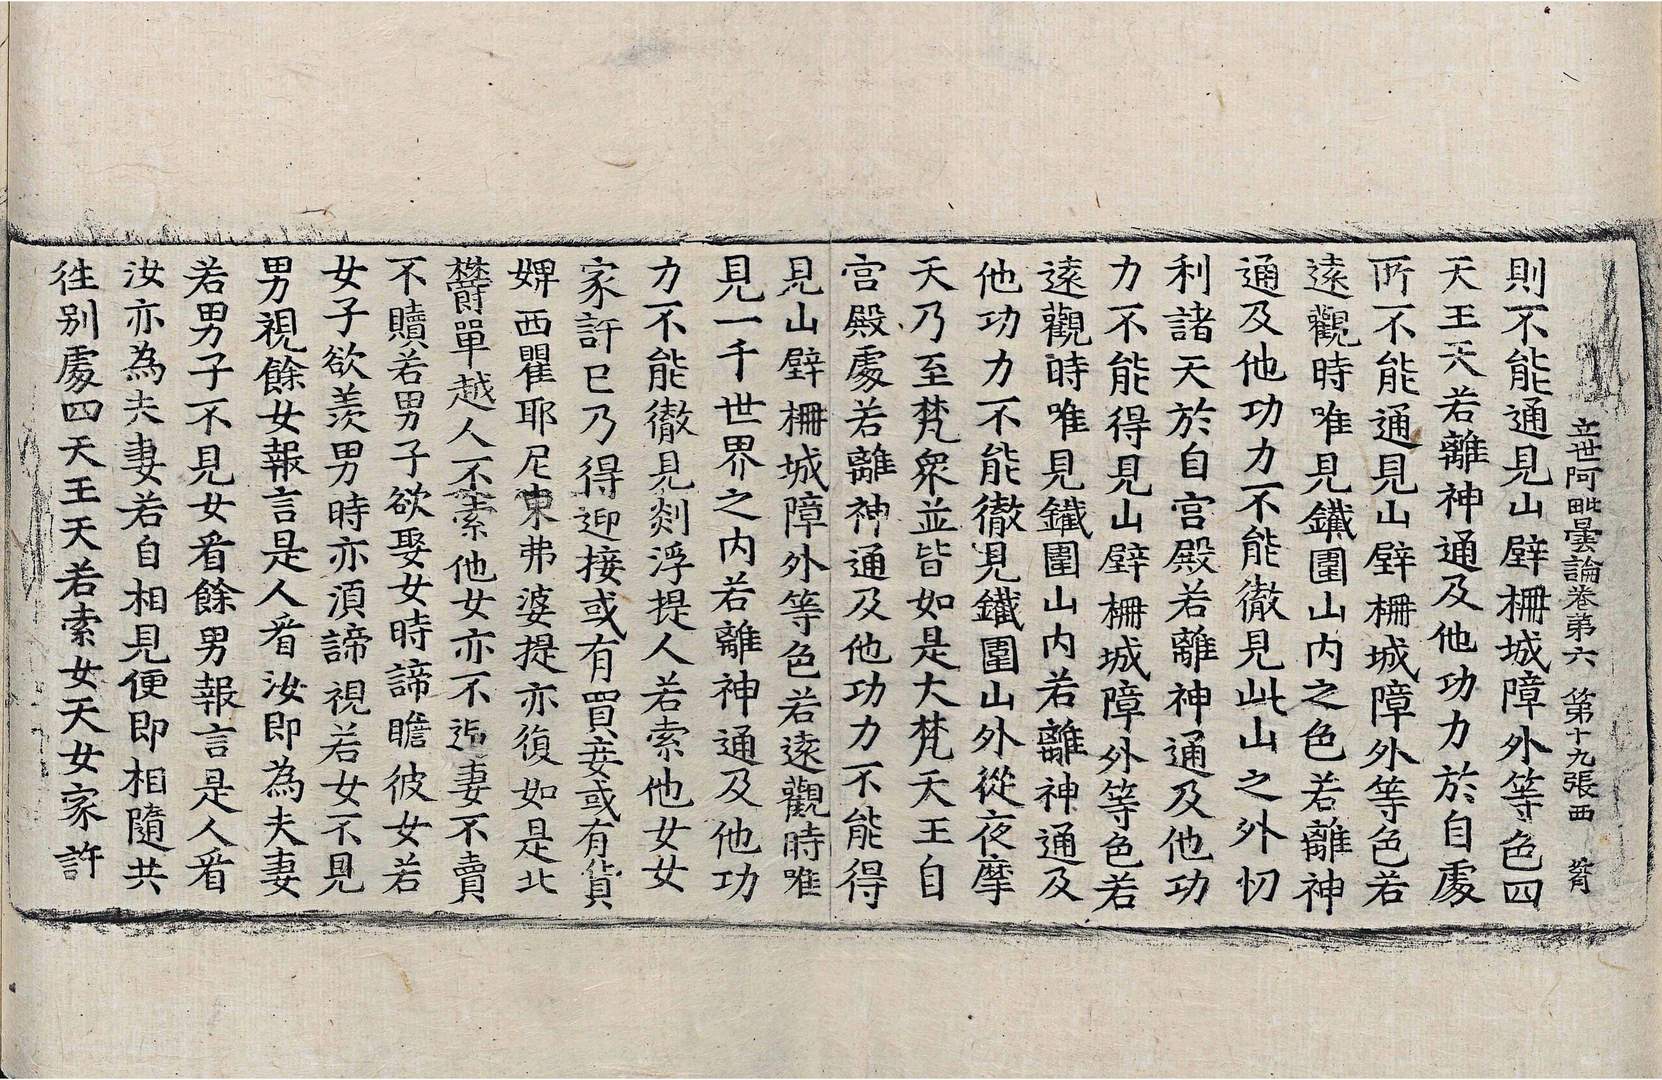 立世阿毗曇論卷第六 第十九張 西
則不能通見山壁柵城障外等色四
天王天若離神通及他功力於自處
所不能通見山壁柵城障外等色若
遠觀時唯見鐵圍山內之色若離神
通及他功力不能徹見此山之外忉
利諸天於自宮殿若離神通及他功
力不能得見山壁柵城障外等色若
遠觀時唯見鐵圍山內若離神通及
他功力不能徹見鐵圍山外從夜摩
天乃至梵衆並皆如是大梵天王自
宮殿處若離神通及他功力不能得
見山壁柵城障外等色若遠觀時唯
見一千世界之內若離神通及他功
力不能徹見剡浮提人若索他女女
家許已乃得迎接或有買妾或有貨
婢西瞿耶尼東弗婆提亦復如是北
欝單越人不索他女亦不迎妻不賣
不贖若男子欲娶女時諦瞻彼女若
女子欲羡男時亦湏諦視若女不見
男視餘女報言是人看汝即為夫妻
若男子不見女看餘男報言是人看
汝亦為夫妻若自相見便即相隨共
往別處四天王天若索女天女家許